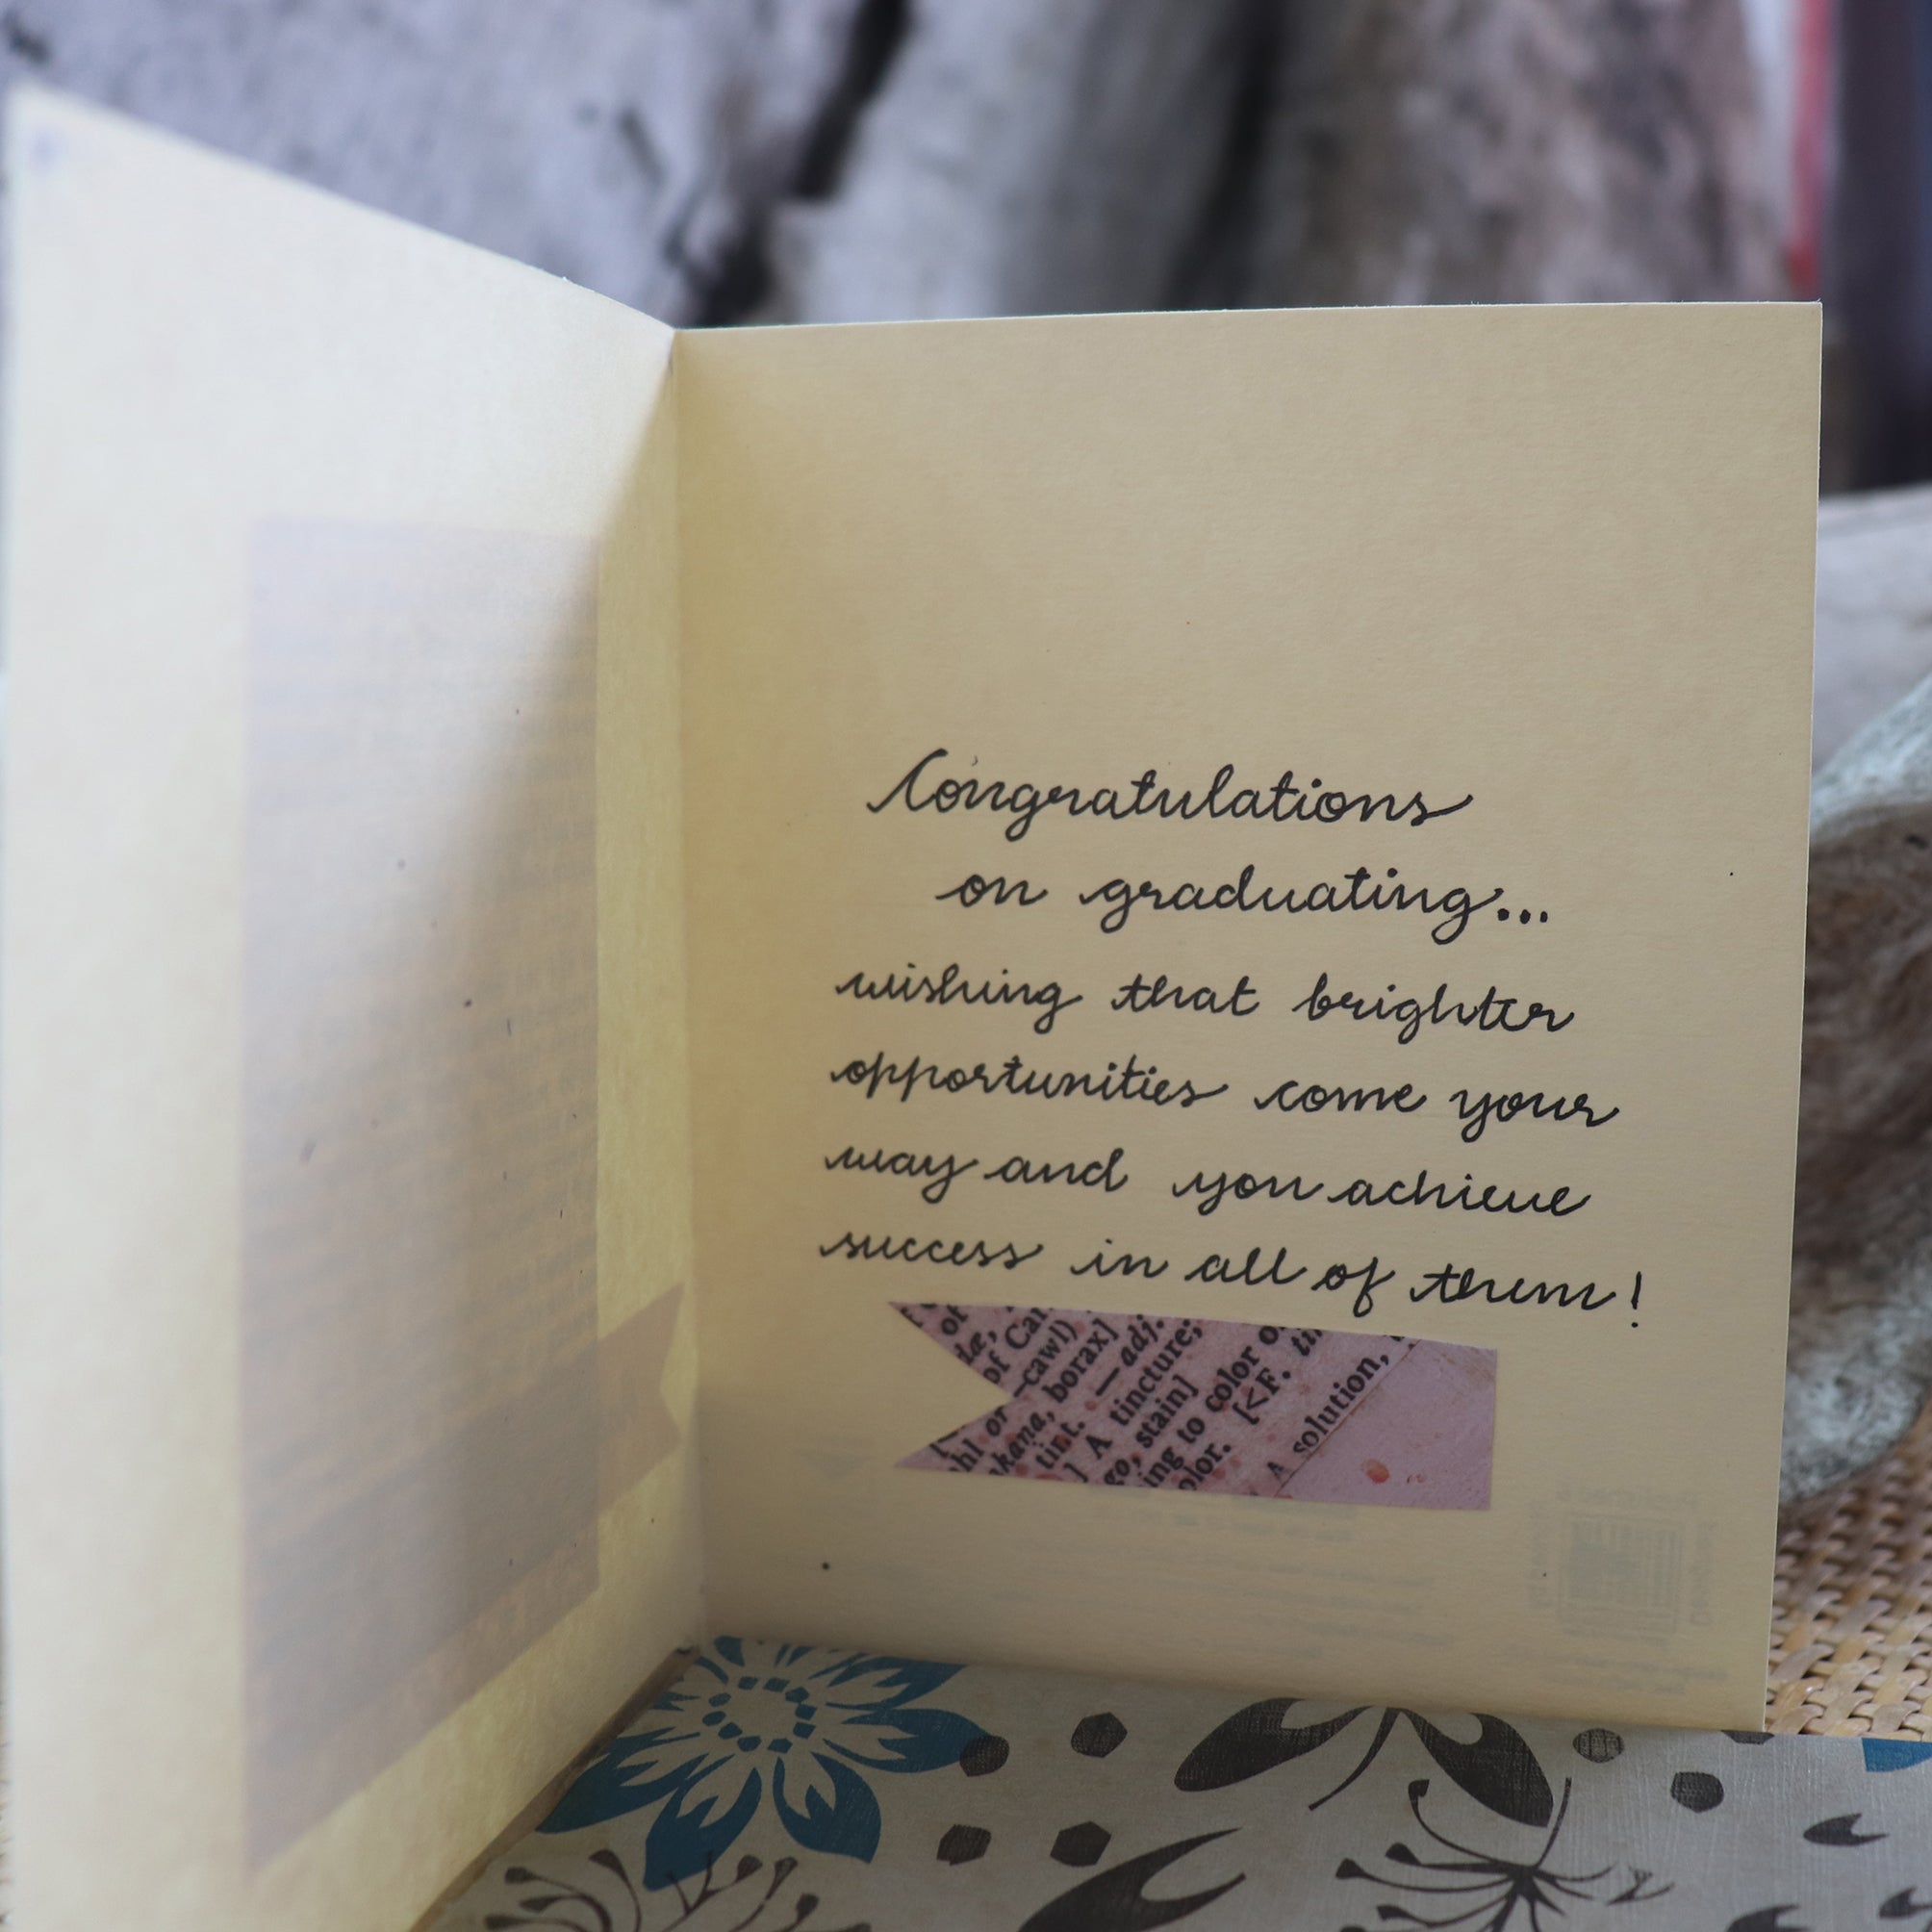 Congratulations
on graduating...
wishing that brighter
opportunities come your
way and you achieve
success in all of them!
of
of Can
-cawl)
borax]
—adj.
hl or
kana,
tint.
] A tincture;
go, stain]
ing to color
olor. [<F.
A solution,